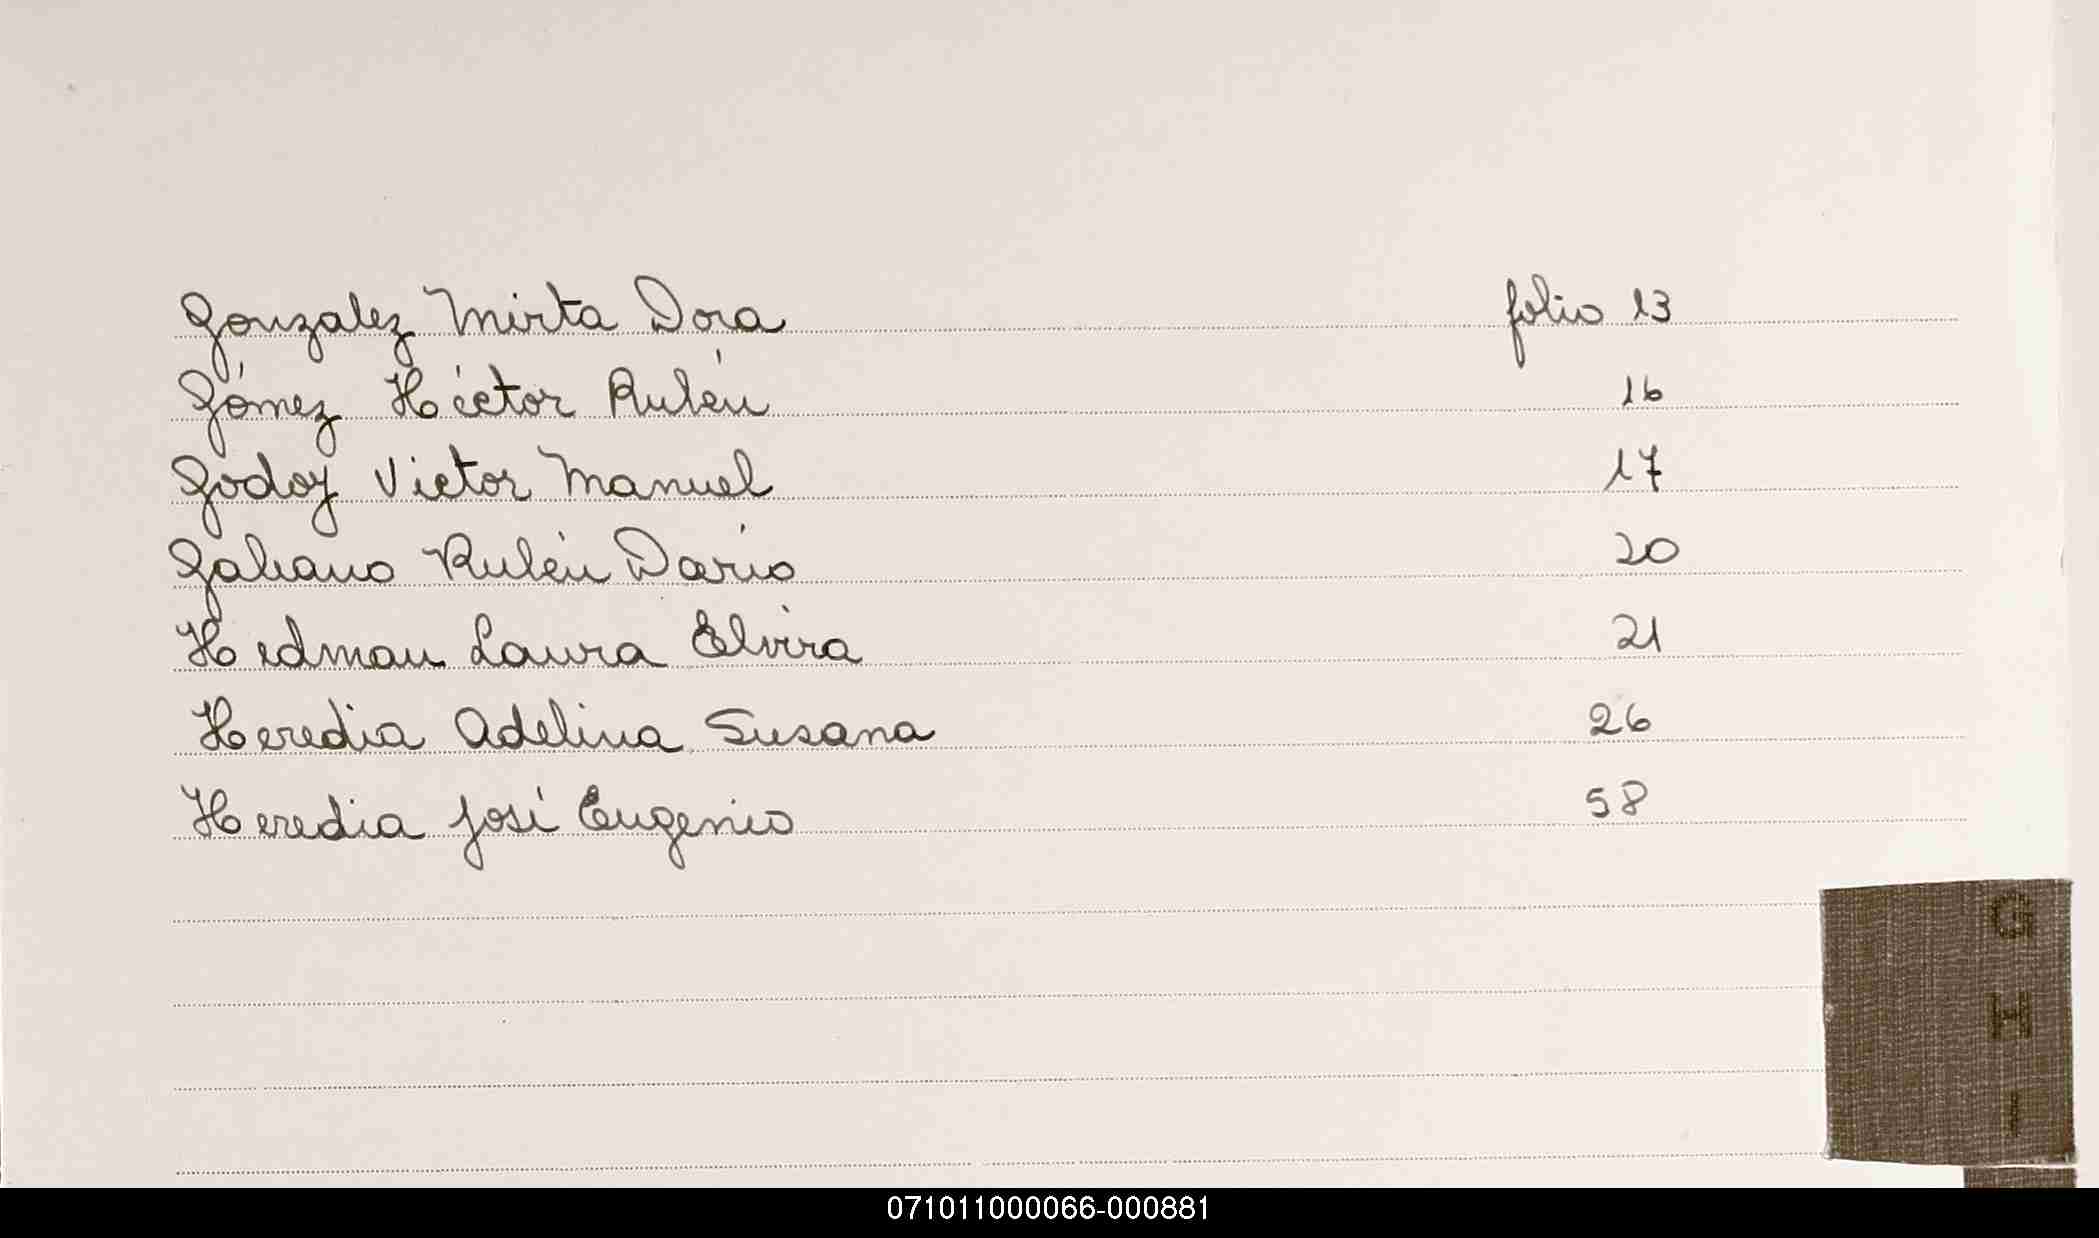 Gonzalez Mirta Dora folio 13
Gómez Héctor Rubén 16
Godoy Victor Manuel 17
Rubén Darío 20
Hedman Laura Elvira 21
Heredia Adelina Susana 26
Heredia José Eugenio 58
G
H
I
071011000066-000881